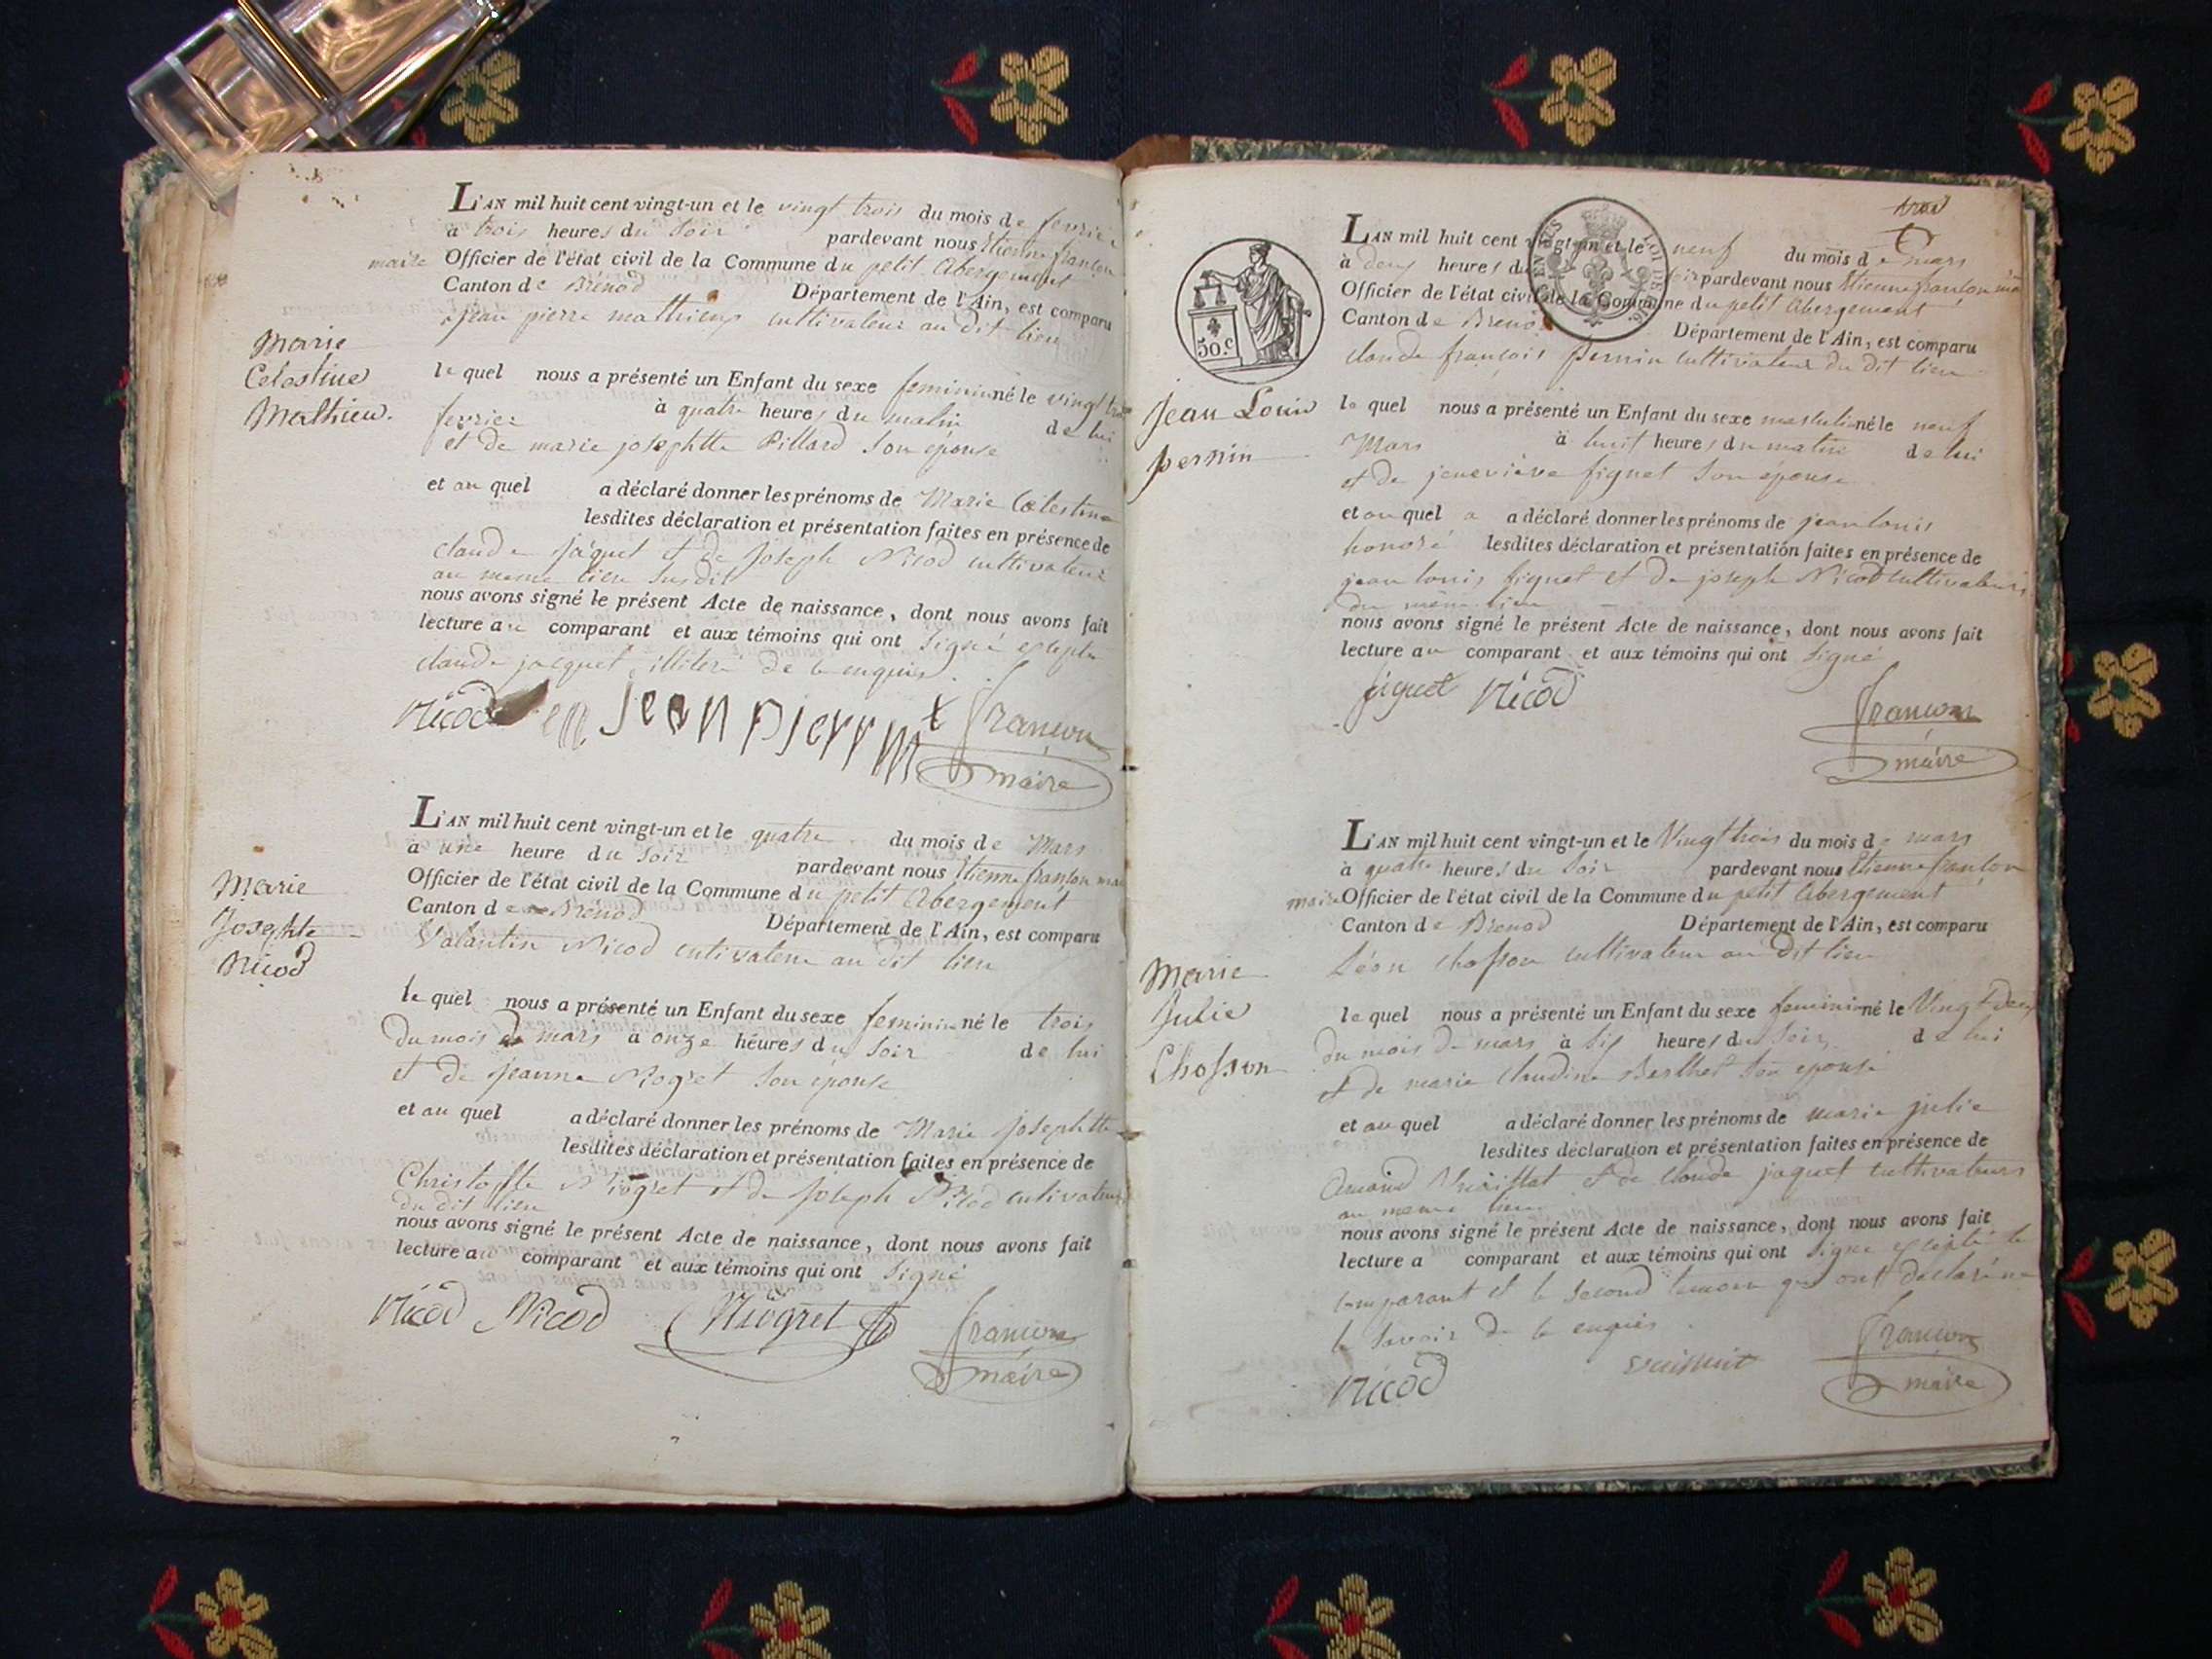 L'AN mil huit cent vingt-un et le vingt trois du mois de fevrier
à trois heures du soir pardevant nous Etienne françon
maire Officier de l'état civil de la Commune du petit Abergement
Canton de Brénod Département de l'Ain, est comparu
jean pierre mathieu cultivateur au dit lieu
Marie
Celestine
Mathieu.
le quel nous a présenté un Enfant du sexe feminin né le vingt trois
fevrier à quatre heures du matin de lui
et de marie josephtte Pillard son épouse
et au quel a déclaré donner les prénoms de Marie Célestine
lesdites déclaration et présentation faites en présence de
claude jaquet et de joseph Nicod cultivateurs
au meme lieu susdit
nous avons signé le présent Acte de naissance, dont nous avons fait
lecture au comparant et aux témoins qui ont signé excepté
claude jacquet illiteré de ce enquis.
Nicod jean pierr mt françon
maire
L'AN mil huit cent vingt-un et le quatre du mois de Mars
à une heure du soir pardevant nous Etienne françon mai
Officier de l'état civil de la Commune du petit Abergement
Canton de Brénod Département de l'Ain, est comparu
Valantin Nicod cutivateur au dit lieu
Marie
Josephte
Nicod
le quel nous a présenté un Enfant du sexe feminin né le trois
du mois de mars à onze heures du soir de lui
et de jeanne Niogret son épouse
et au quel a déclaré donner les prénoms de Marie josephtte
lesdites déclaration et présentation faites en présence de
Christoffle Niogret et de joseph Nicod cutivateurs
du dit lieu
nous avons signé le présent Acte de naissance, dont nous avons fait
lecture au comparant et aux témoins qui ont signé
Nicod Nicod Niogret françon
maire
trois
L'AN mil huit cent vingt-un et le neuf du mois de mars
à deux heures du soir pardevant nous Etienne françon ma
Officier de l'état civil de la Commune du petit Abergement
Canton de Brénod Département de l'Ain, est comparu
claude françois perrin cultivateur du dit lieu
EN SUS
LOI DE 1816.
50.c
Jean Louis
perrin
le quel nous a présenté un Enfant du sexe masculin né le neuf
Mars à huit heures du matin de lui
et de jeneviève figuet son épouse
et au quel a a déclaré donner les prénoms de jean louis
honoré lesdites déclaration et présentation faites en présence de
jean louis figuet et de joseph Nicod cultivateurs
du même lieu
nous avons signé le présent Acte de naissance, dont nous avons fait
lecture au comparant et aux témoins qui ont signé
figuet Nicod françon
maire
L'AN mil huit cent vingt-un et le Vingt trois du mois de mars
à quatre heures du soir pardevant nous Etienne françon
maire Officier de l'état civil de la Commune du petit Abergement
Canton de Brenod Département de l'Ain, est comparu
Léon chosson cultivateur au dit lieu
Marie
Julie
Chosson
le quel nous a présenté un Enfant du sexe feminin né le Vingt deux
du mois de mars à six heures du soir de lui
et de marie claudine Berthet son epouse
et au quel a déclaré donner les prénoms de marie julie
lesdites déclaration et présentation faites en présence de
et de claude jaquet cultivateurs
au meme lieu
nous avons signé le présent Acte de naissance, dont nous avons fait
lecture a comparant et aux témoins qui ont signe excepté le
comparant et le second temoin qui ont déclaré ne
le savoir de ce enquis.
Nicod françon
maire